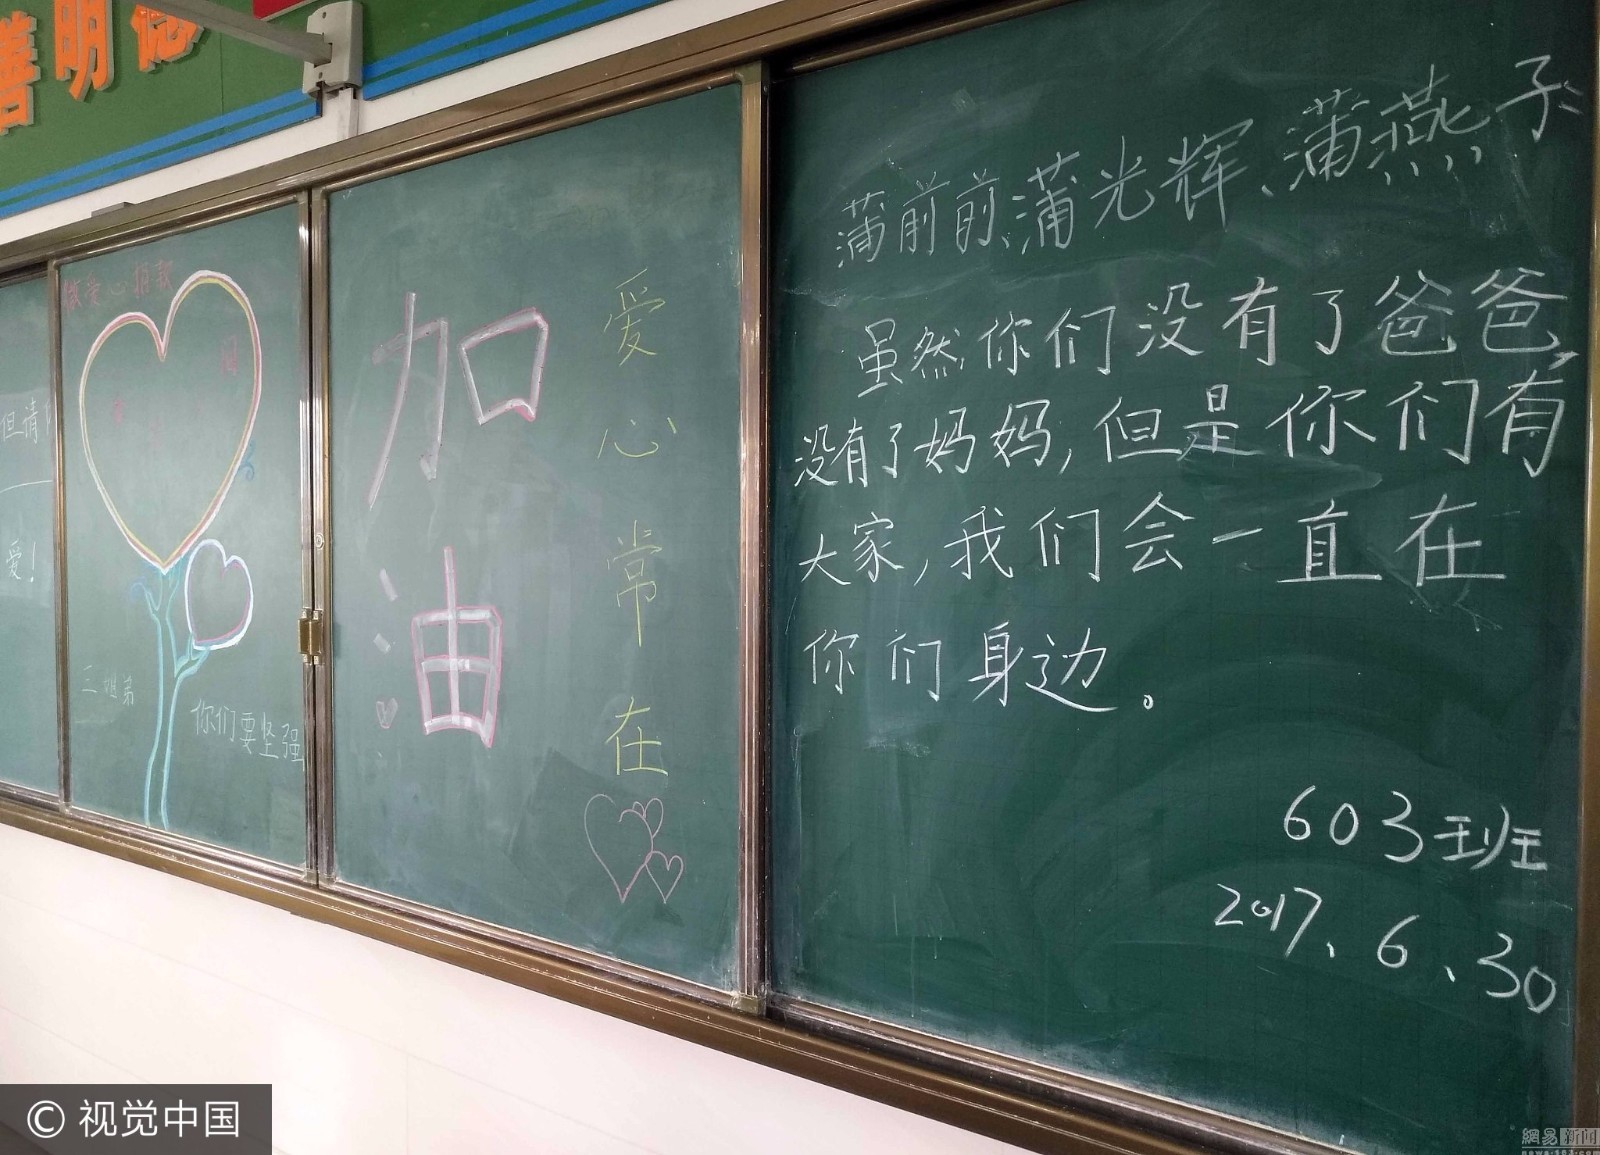 善明德
但请
爱!
做爱心捐款
三姐弟
你们要坚强
加油
爱心常在
蒲前前、蒲光辉、蒲燕子:
虽然你们没有了爸爸,
没有了妈妈,但是你们有
大家,我们会一直在
你们身边。
603班
2017、6、30
© 视觉中国
網易新闻
news.163.com